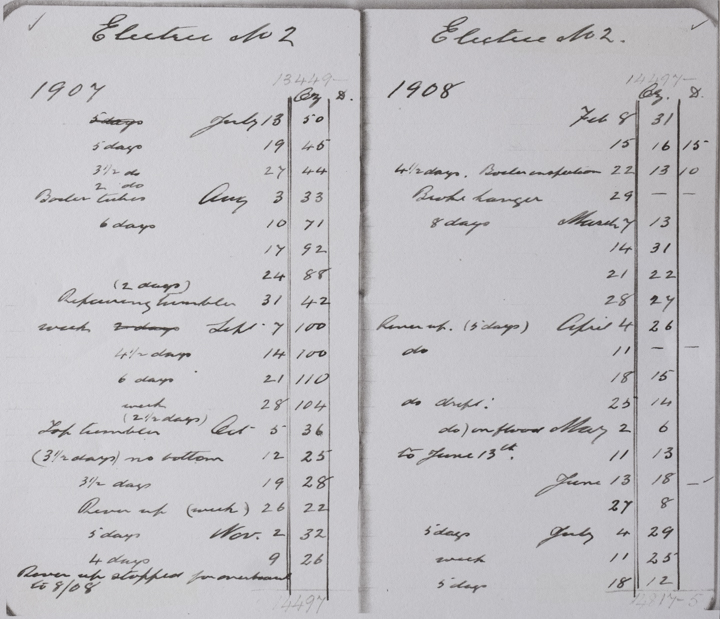 Electric No 2
1907
13449-
Oz. D.
5 days July 13 50
5 days 19 45
3½ do 27 44
2 do
Boiler tubes Aug 3 33
6 days 10 71
17 92
24 88
(2 days)
Repairing tumbler 31 42
week 2 days Sept 7 100
4½ days 14 100
6 days 21 110
week 28 104
(2½ days)
Top tumbler Oct 5 36
(3½ days) no bottom 12 25
3½ days 19 28
River up (week) 26 22
5 days Nov. 2 32
4 days 9 26
River up stopped for
to 8/08
14497
Electric No 2.
1908
14497-
Oz. D.
Feb 8 31
15 16 15
4½ days. Boiler inspection 22 13 10
Broke hanger 29 – –
8 days March 7 13
14 31
21 22
28 27
River up. (5 days) April 4 26
do 11 – –
18 15
do 25 14
do) on flood May 2 6
to June 13th. 11 13
June 13 18 –
27 8
5 days July 4 29
week 11 25
5 days 18 12